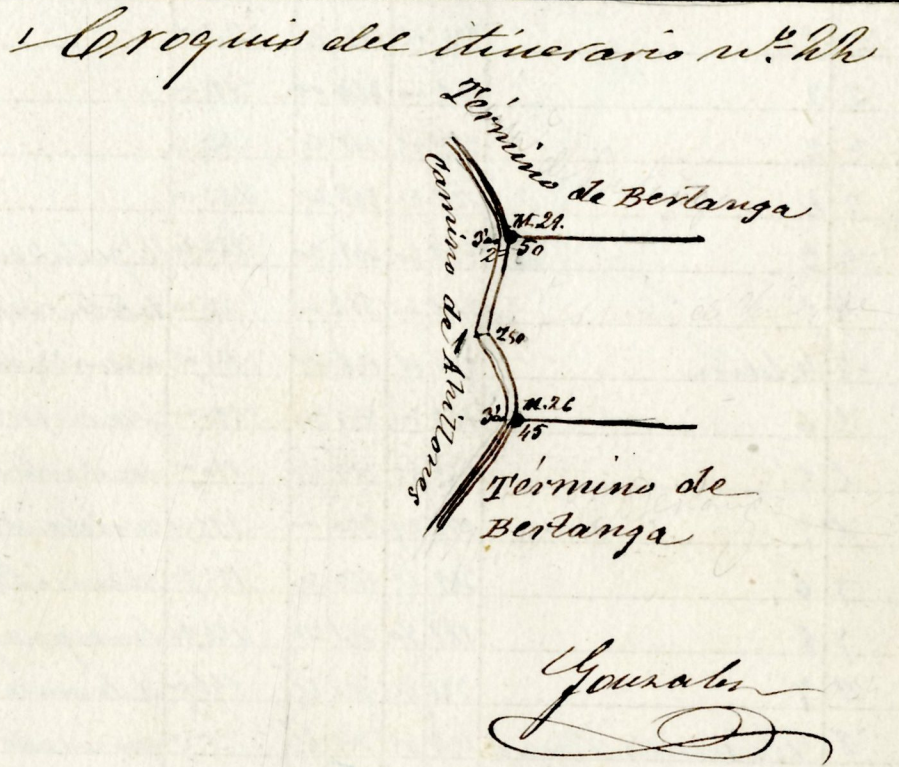 Croquis del itinerario nº 22
Término
de Berlanga
Camino de Ahillones
M.29.
3ª
2ª 50
250
3ª M.26
45
Término de
Berlanga
Gonzalez